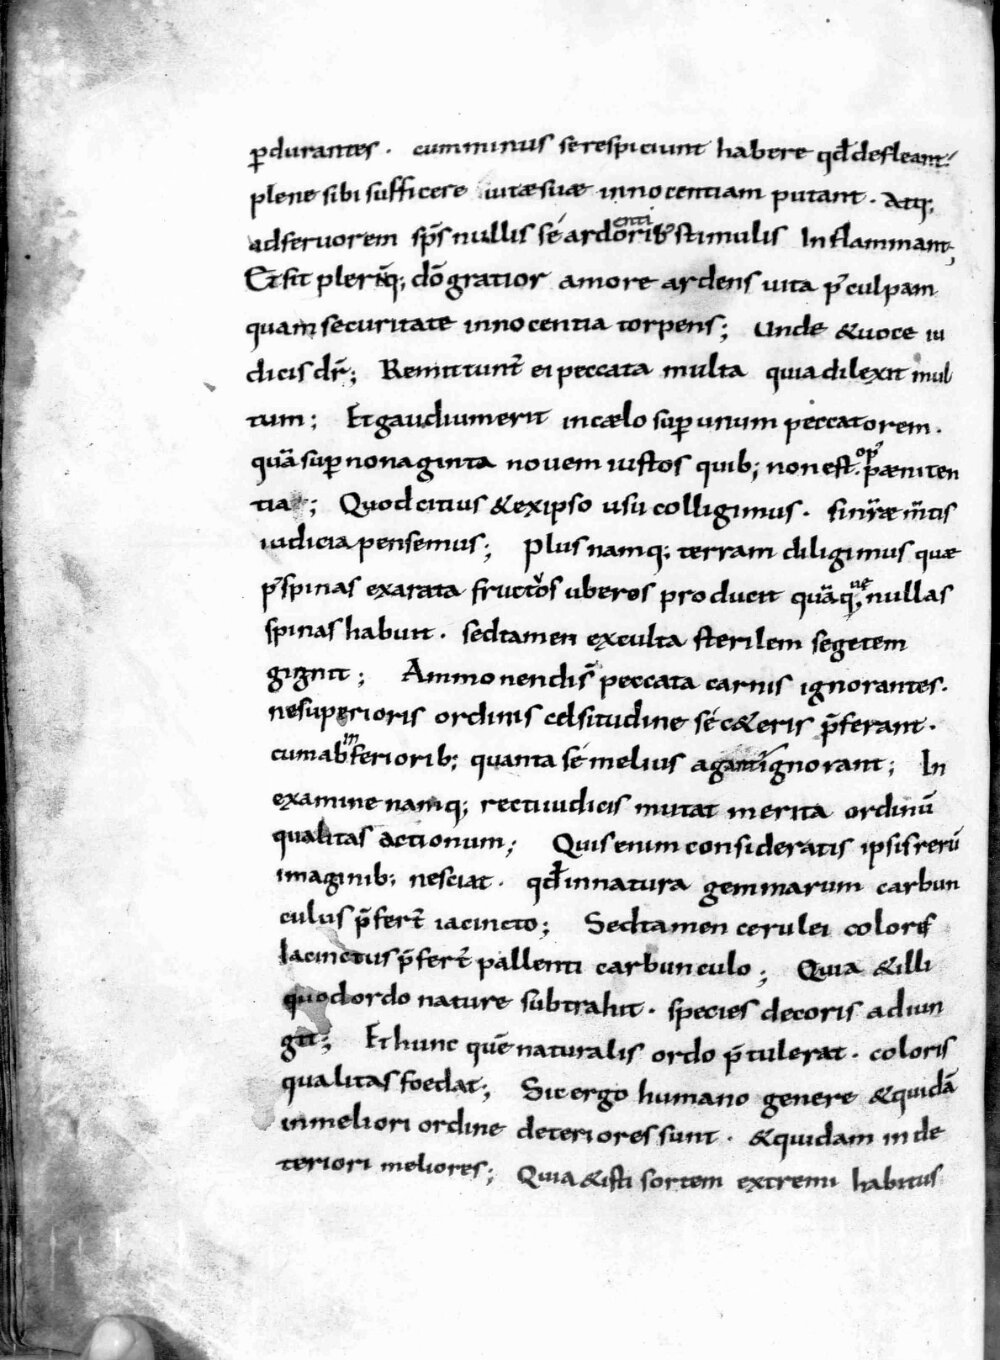 ꝑdurantes . cumminus serespiciunt habere qđdefleant.
plene sibi sufficere uitæsuæ innocentiam putant . Atq;
adferuorem sp̄s nullis sé ardorib; enti stimulis Inflammant;
Et fit pleriq̄; dō gratior amore ardens uita p̄ culpam
quam securitate innocentia torpens; Unde &uoce iu
dicis dr̄; Remittunt̄ ei peccata multa quia dilexit mul
tum; Et gaudium erit incælo suꝑ unum peccatorem.
quā suꝑ nonaginta nouem iustos quib; non est op̄ pæniten
tia; Quod citius &exipso usu colligimus . si nr̄æ m̄tis
iudicia pensemus; Plus namq; terram diligimus quæ
p̄ spinas exarata fructos uberes producit quā q; ue nullas
spinas habuit . sed tamen exculta sterilem segetem
gignit; Ammonendi s̄ peccata carnis ignorantes .
ne superioris ordinis celsitudine sé c&eris p̄ferant .
cum ab inferiorib; quanta sé melius agant ignorant; In
examine namq; recti iudicis mutat merita ordinū
qualitas actionum; Quis enim consideratis ipsis rerū
imaginib; nesciat . qđ innatura gemmarum carbun
culus p̄fert̄ iacincto; Sed tamen cerulei coloris
Iacinctus p̄fert̄ pallenti carbunculo; Quia &illi
quod ordo nature subtrahit . species decoris adiun
git; Et hunc quē naturalis ordo p̄tulerat . coloris
qualitas foedat; Sic ergo humano genere &quidā
in meliori ordine deteriores sunt . &quidam in de
teriori meliores; Quia &isti sortem extremi habitus